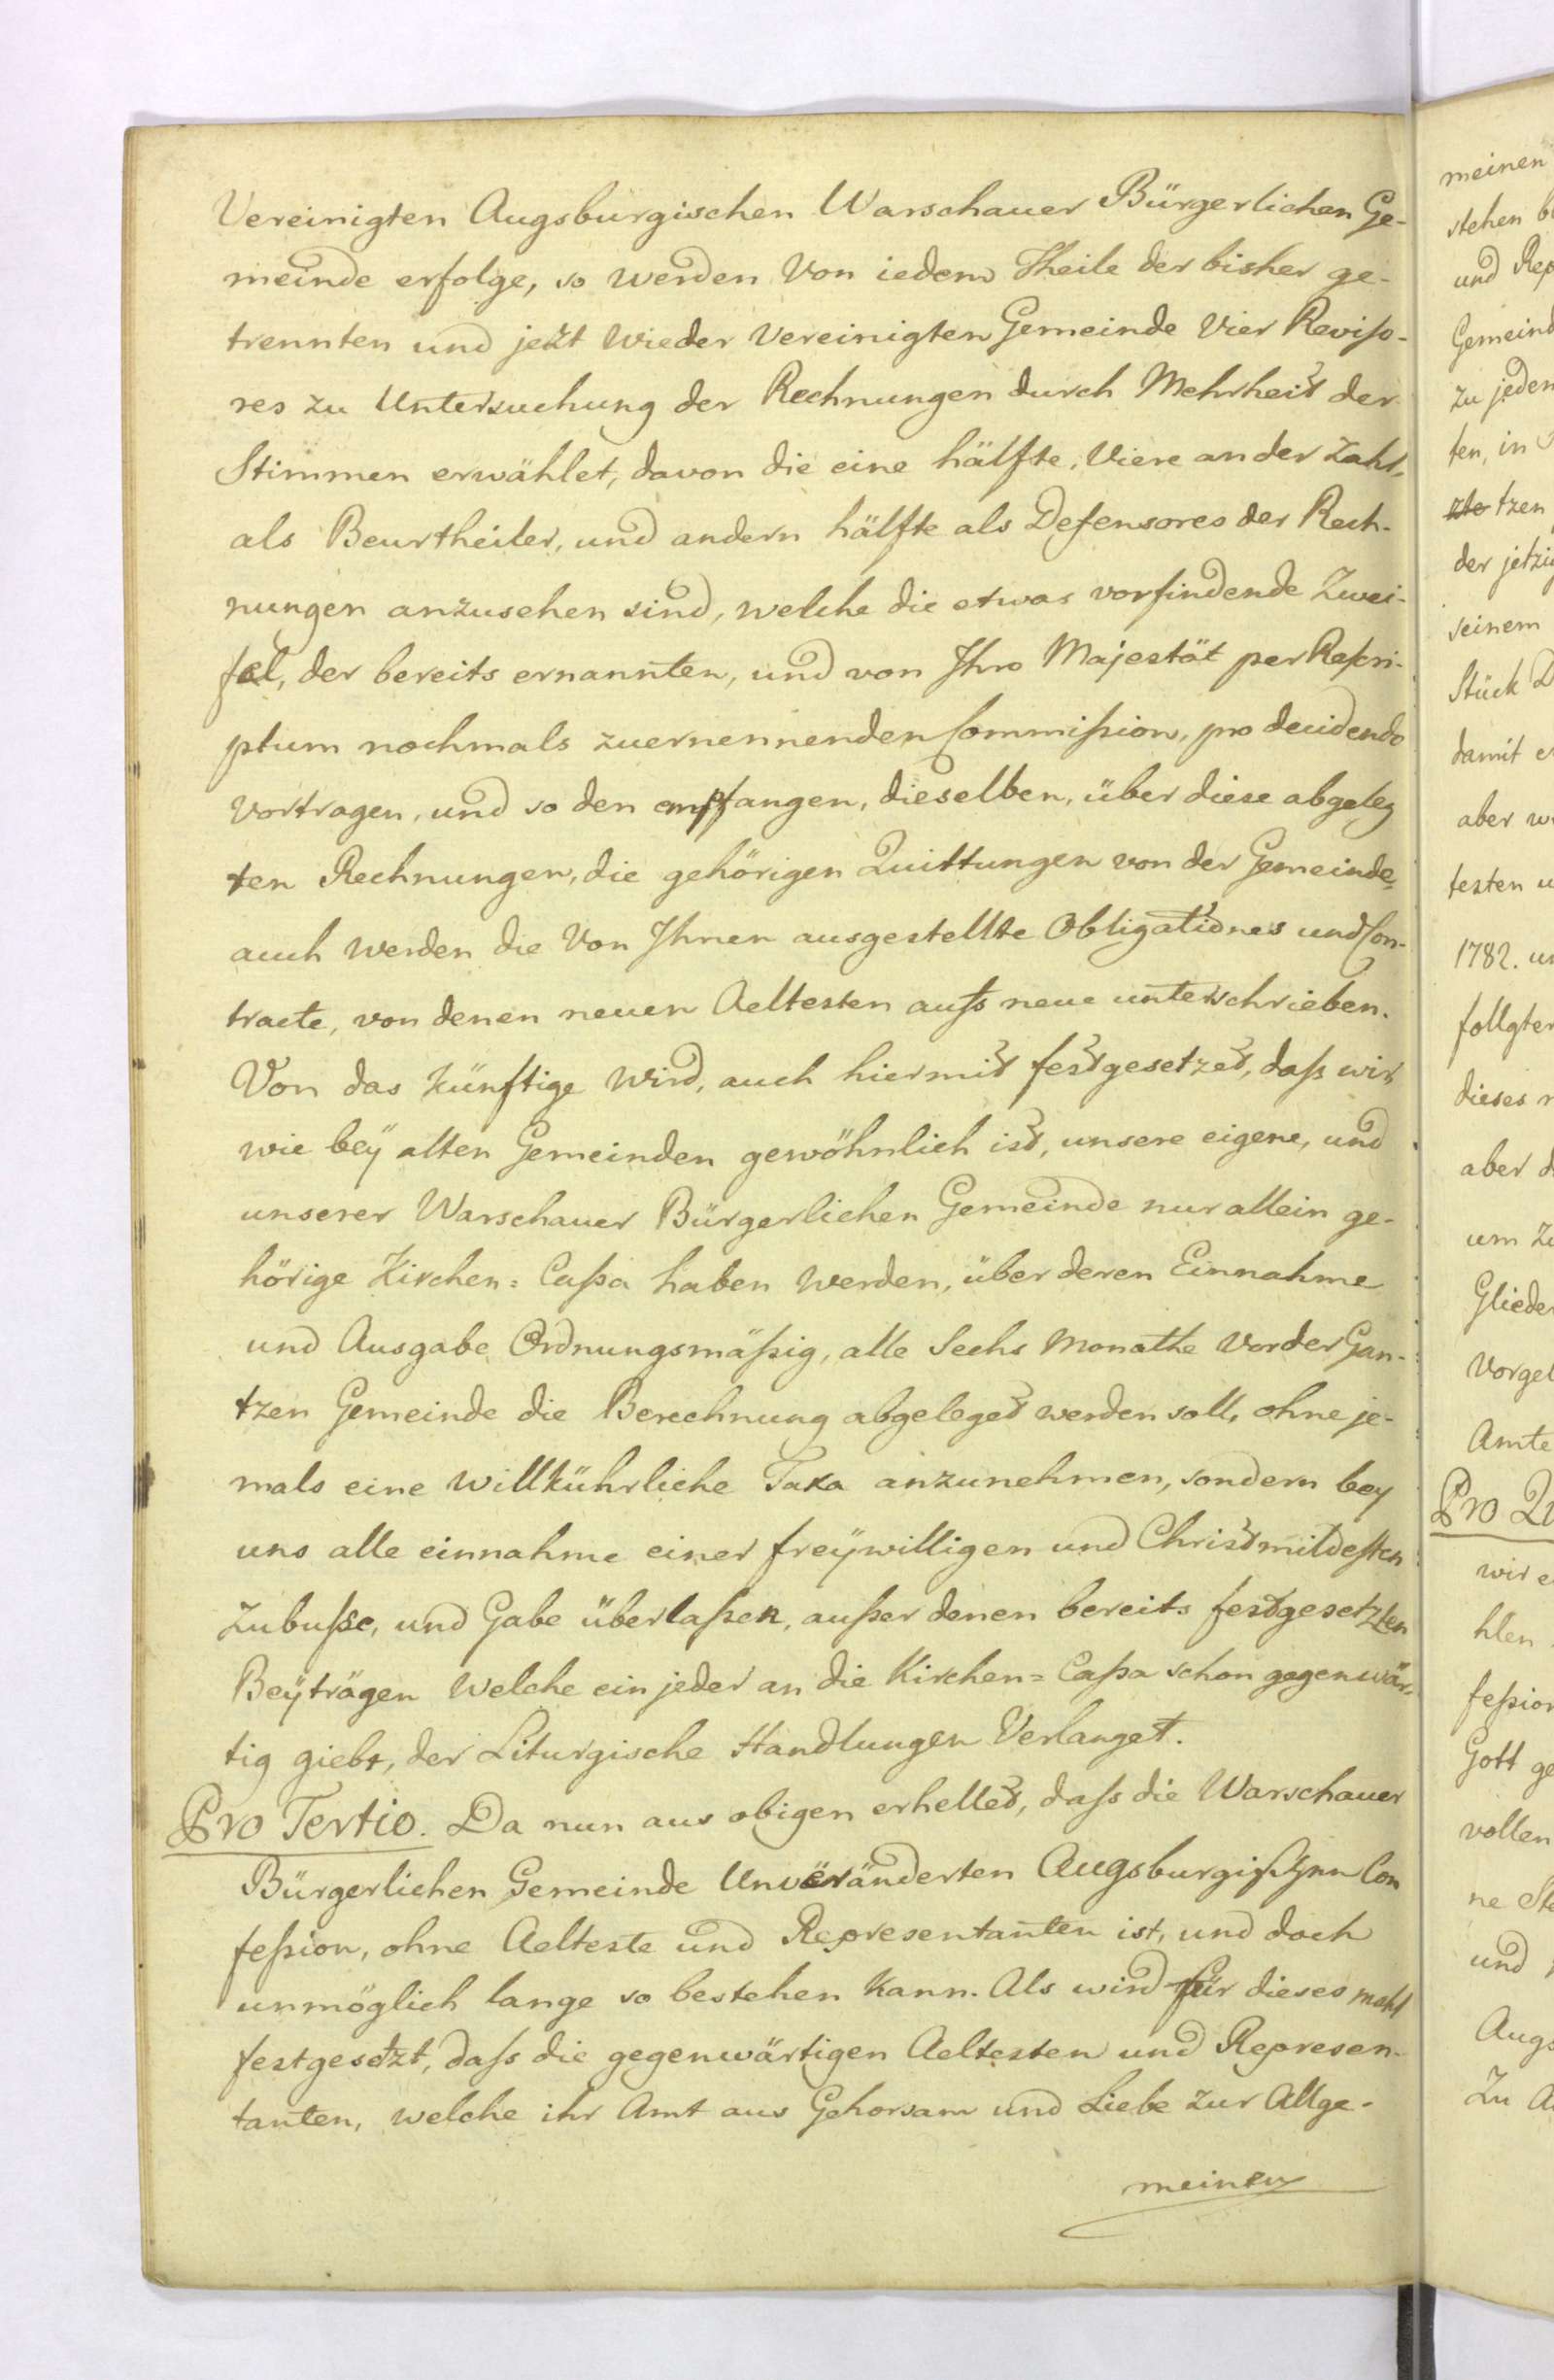 Vereinigten Augsburgischen Warschauer Bürgerlichen Ge-
meinde erfolge, so werden Von iedem Theile der bisher ge-
trennten und jezt Wieder Vereinigten Gemeinde Vier Reviso-
res zu Untersuchung der Rechnungen durch Mehrheit der
Stimmen erwählet, davon die eine hälfte, Viere an der Zahl,
als Beurtheiler, und andern hälfte als Defensores der Rech-
nungen anzusehen sind, welche die etwas vorfindende Zwei-
fel, der bereits ernannten, und von Ihro Majestät per Rescri-
ptum nochmals zuernennenden Commißion, pro decidendo
Vortragen, und so den empfangen, dieselben, über diese abgeleg
ten Rechnungen, die gehörigen Quittungen von der Gemeinde,
auch werden die Von Ihnen ausgestellte Obligationes und Con-
tracte, von denen neuen Aeltesten aufs neue unterschrieben.
Von das künftige Wird, auch hiermit festgesetzet, daß wir
wie beÿ allen Gemeinden gewöhnlich ist, unsere eigene, und
unserer Warschauer Bürgerlichen Gemeinde nur allein ge-
hörige Kirchen= Caßa haben werden, über deren Einnahme
und Ausgabe Ordnungsmäßig, alle Sechs Monathe Vor der Gan-
tzen Gemeinde die Berechnung abgeleget werden soll, ohne je-
mals eine Willkührliche Taxa anzunehmen, sondern bey
uns alle einnahme einer freÿwilligen und Christmildesten
Zubuße, und Gabe überlaßen, außer denen bereits festgesetzten
Beÿträgen Welche ein jeder an die Kirchen= Caßa schon gegenwär-
tig giebt, der Liturgische Handlungen Verlanget.
Pro Tertio. Da nun aus obigen erhellet, daß die Warschauer
Bürgerlichen Gemeinde Unveränderten Augsburgischen Con
feßion, ohne Aelteste und Representanten ist, und doch
unmöglich lange so bestehen kann. Als wird für dieses mahl
festgesetzt, daß die gegenwärtigen Aeltesten und Represen-
tanten, welche ihr Amt aus Gehorsam und Liebe zur Allge-
meinen
meinen
stehen
und Rep
Gemeind
zu jeden
ten, in
tzen
der jetzig
seinem
Stück
damit
aber
testen
1782.
follgter
dieses
aber
um
Glieder
Vorge
Amte
Pro
wir
hlen
feßion
Gott ge
vollen
ne
und
Augs
Zu